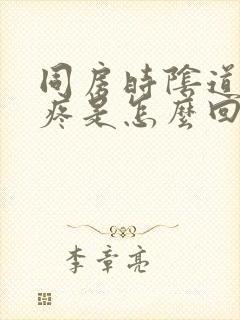 同房時陰道
疼是怎麼回
李章亮